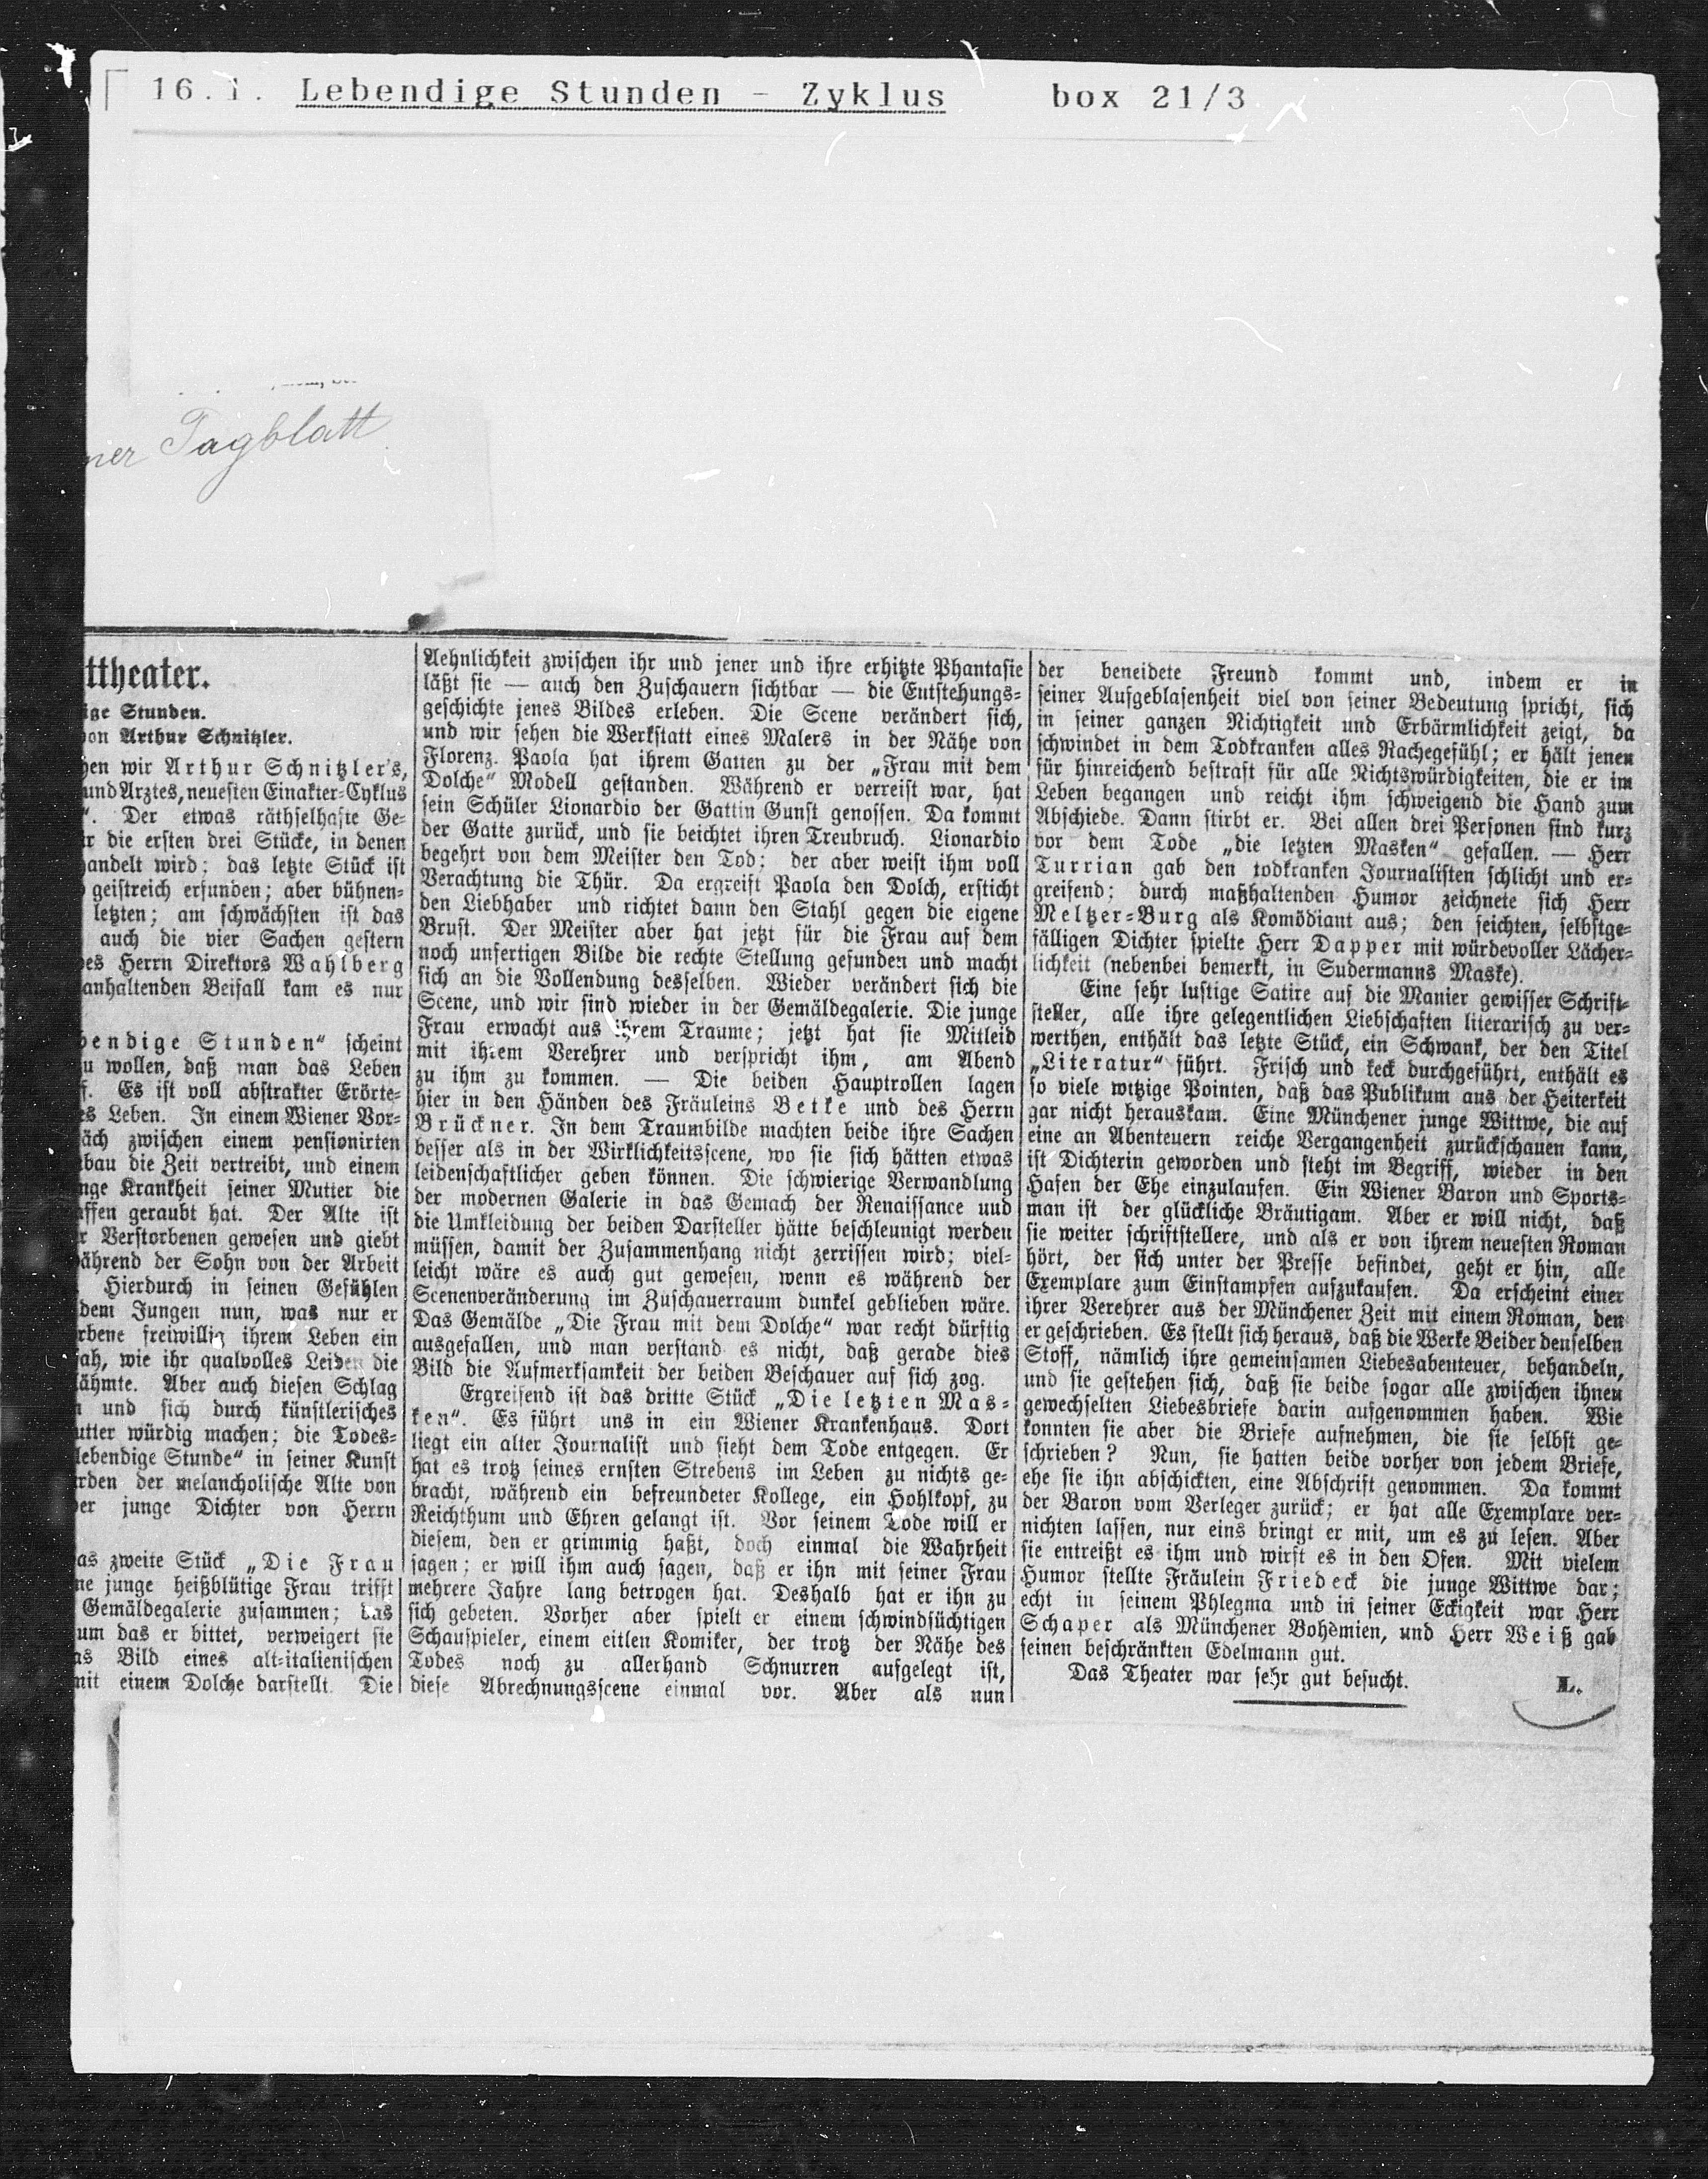 16.1. Lebendige Stunden - Zyklus box 21/3
ner Tagblatt
ttheater.
ige Stunden.
on Arthur Schnitzler.
hen wir Arthur Schnitzler's,
und Arztes, neuesten Einakter-Cyklus
“. Der etwas räthselhafte Ge-
r die ersten drei Stücke, in denen
handelt wird; das letzte Stück ist
geistreich erfunden; aber bühnen-
letzten; am schwächsten ist das
auch die vier Sachen gestern
des Herrn Direktors Wahlberg
anhaltenden Beifall kam es nur
bendige Stunden“ scheint
u wollen, daß man das Leben
f. Es ist voll abstrakter Erörte-
es Leben. In einem Wiener Vor-
äch zwischen einem pensionirten
bau die Zeit vertreibt, und einem
nge Krankheit seiner Mutter die
affen geraubt hat. Der Alte ist
r Verstorbenen gewesen und giebt
ährend der Sohn von der Arbeit
Hierdurch in seinen Gefühlen
dem Jungen nun, was nur er
rbene freiwillig ihrem Leben ein
sah, wie ihr qualvolles Leiden die
ähmte. Aber auch diesen Schlag
n und sich durch künstlerisches
utter würdig machen; die Todes-
lebendige Stunde“ in seiner Kunst
rden der melancholische Alte von
er junge Dichter von Herrn
as zweite Stück „Die Frau
ne junge heißblütige Frau trifft
Gemäldegalerie zusammen; das
um das er bittet, verweigert sie
as Bild eines alt-italienischen
mit einem Dolche darstellt. Die
Aehnlichkeit zwischen ihr und jener und ihre erhitzte Phantasie
läßt sie — auch den Zuschauern sichtbar — die Entstehungs-
geschichte jenes Bildes erleben. Die Scene verändert sich,
und wir sehen die Werkstatt eines Malers in der Nähe von
Florenz. Paola hat ihrem Gatten zu der „Frau mit dem
Dolche“ Modell gestanden. Während er verreist war, hat
sein Schüler Lionardio der Gattin Gunst genossen. Da kommt
der Gatte zurück, und sie beichtet ihren Treubruch. Lionardio
begehrt von dem Meister den Tod; der aber weist ihm voll
Verachtung die Thür. Da ergreift Paola den Dolch, ersticht
den Liebhaber und richtet dann den Stahl gegen die eigene
Brust. Der Meister aber hat jetzt für die Frau auf dem
noch unfertigen Bilde die rechte Stellung gefunden und macht
sich an die Vollendung desselben. Wieder verändert sich die
Scene, und wir sind wieder in der Gemäldegalerie. Die junge
Frau erwacht aus ihrem Traume; jetzt hat sie Mitleid
mit ihrem Verehrer und verspricht ihm, am Abend
zu ihm zu kommen. — Die beiden Hauptrollen lagen
hier in den Händen des Fräuleins Betke und des Herrn
Brückner. In dem Traumbilde machten beide ihre Sachen
besser als in der Wirklichkeitsscene, wo sie sich hätten etwas
leidenschaftlicher geben können. Die schwierige Verwandlung
der modernen Galerie in das Gemach der Renaissance und
die Umkleidung der beiden Darsteller hätte beschleunigt werden
müssen, damit der Zusammenhang nicht zerrissen wird; viel-
leicht wäre es auch gut gewesen, wenn es während der
Scenenveränderung im Zuschauerraum dunkel geblieben wäre.
Das Gemälde „Die Frau mit dem Dolche“ war recht dürftig
ausgefallen, und man verstand es nicht, daß gerade dies
Bild die Aufmerksamkeit der beiden Beschauer auf sich zog.
Ergreifend ist das dritte Stück „Die letzten Mas-
ken“. Es führt uns in ein Wiener Krankenhaus. Dort
liegt ein alter Journalist und sieht dem Tode entgegen. Er
hat es trotz seines ernsten Strebens im Leben zu nichts ge-
bracht, während ein befreundeter Kollege, ein Hohlkopf, zu
Reichthum und Ehren gelangt ist. Vor seinem Tode will er
diesem, den er grimmig haßt, doch einmal die Wahrheit
sagen; er will ihm auch sagen, daß er ihn mit seiner Frau
mehrere Jahre lang betrogen hat. Deshalb hat er ihn zu
sich gebeten. Vorher aber spielt er einem schwindsüchtigen
Schauspieler, einem eitlen Komiker, der trotz der Nähe des
Todes noch zu allerhand Schnurren aufgelegt ist,
diese Abrechnungsscene einmal vor. Aber als nun
der beneidete Freund kommt und, indem er in
seiner Aufgeblasenheit viel von seiner Bedeutung spricht, sich
in seiner ganzen Nichtigkeit und Erbärmlichkeit zeigt, da
schwindet in dem Todkranken alles Rachegefühl; er hält jenen
für hinreichend bestraft für alle Nichtswürdigkeiten, die er im
Leben begangen und reicht ihm schweigend die Hand zum
Abschiede. Dann stirbt er. Bei allen drei Personen sind kurz
vor dem Tode „die letzten Masken“ gefallen. — Herr
Turrian gab den todkranken Journalisten schlicht und er-
greifend; durch maßhaltenden Humor zeichnete sich Herr
Meltzer-Burg als Komödiant aus; den seichten, selbstge-
fälligen Dichter spielte Herr Dapper mit würdevoller Lächer-
lichkeit (nebenbei bemerkt, in Sudermanns Maske).
Eine sehr lustige Satire auf die Manier gewisser Schrift-
steller, alle ihre gelegentlichen Liebschaften literarisch zu ver-
werthen, enthält das letzte Stück, ein Schwank, der den Titel
„Literatur“ führt. Frisch und keck durchgeführt, enthält es
so viele witzige Pointen, daß das Publikum aus der Heiterkeit
gar nicht herauskam. Eine Münchener junge Wittwe, die auf
eine an Abenteuern reiche Vergangenheit zurückschauen kann,
ist Dichterin geworden und steht im Begriff, wieder in den
Hafen der Ehe einzulaufen. Ein Wiener Baron und Sports-
man ist der glückliche Bräutigam. Aber er will nicht, daß
sie weiter schriftstellere, und als er von ihrem neuesten Roman
hört, der sich unter der Presse befindet, geht er hin, alle
Exemplare zum Einstampfen aufzukaufen. Da erscheint einer
ihrer Verehrer aus der Münchener Zeit mit einem Roman, den
er geschrieben. Es stellt sich heraus, daß die Werke Beider denselben
Stoff, nämlich ihre gemeinsamen Liebesabenteuer, behandeln,
und sie gestehen sich, daß sie beide sogar alle zwischen ihnen
gewechselten Liebesbriefe darin aufgenommen haben. Wie
konnten sie aber die Briefe aufnehmen, die sie selbst ge-
schrieben? Nun, sie hatten beide vorher von jedem Briefe,
ehe sie ihn abschickten, eine Abschrift genommen. Da kommt
der Baron vom Verleger zurück; er hat alle Exemplare ver-
nichten lassen, nur eins bringt er mit, um es zu lesen. Aber
sie entreißt es ihm und wirft es in den Ofen. Mit vielem
Humor stellte Fräulein Friedeck die junge Wittwe dar;
echt in seinem Phlegma und in seiner Eckigkeit war Herr
Schaper als Münchener Bohèmien, und Herr Weiß gab
seinen beschränkten Edelmann gut.
Das Theater war sehr gut besucht.
L.